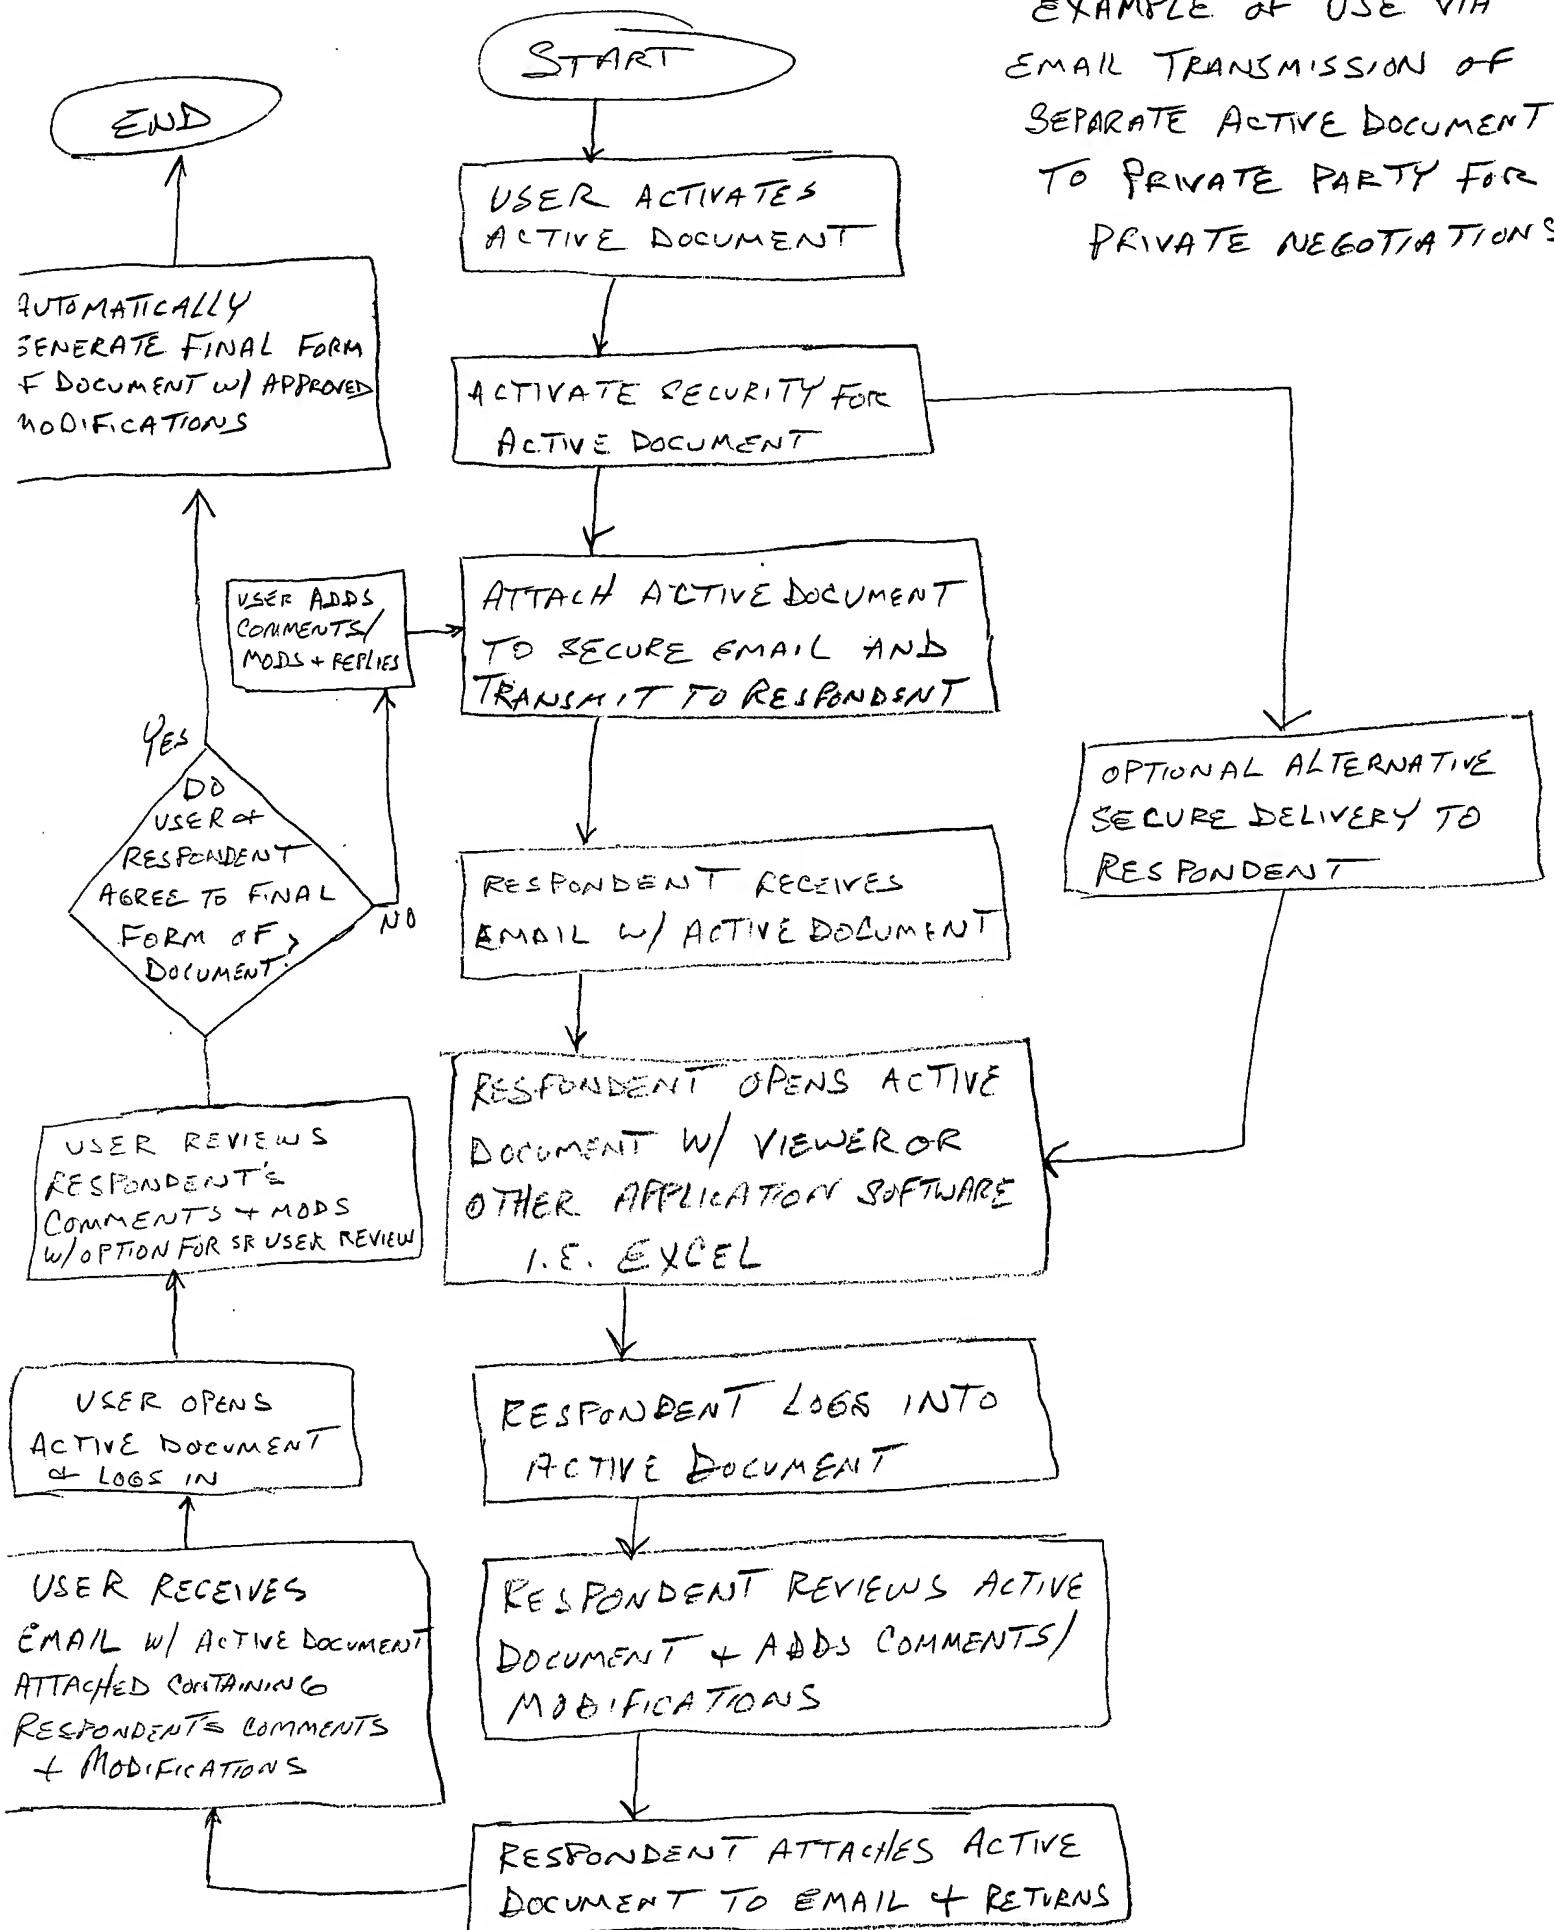 EXAMPLE OF USE VIA
EMAIL TRANSMISSION OF
SEPARATE ACTIVE DOCUMENT
TO PRIVATE PARTY FOR
PRIVATE NEGOTIATIONS
START
USER ACTIVATES
ACTIVE DOCUMENT
ACTIVATE SECURITY FOR
ACTIVE DOCUMENT
ATTACH ACTIVE DOCUMENT
TO SECURE EMAIL AND
TRANSMIT TO RESPONDENT
OPTIONAL ALTERNATIVE
SECURE DELIVERY TO
RESPONDENT
RESPONDENT RECEIVES
EMAIL W/ ACTIVE DOCUMENT
RESPONDENT OPENS ACTIVE
DOCUMENT W/ VIEWER OR
OTHER APPLICATION SOFTWARE
I.E. EXCEL
RESPONDENT LOGS INTO
ACTIVE DOCUMENT
RESPONDENT REVIEWS ACTIVE
DOCUMENT + ADDS COMMENTS/
MODIFICATIONS
RESPONDENT ATTACHES ACTIVE
DOCUMENT TO EMAIL + RETURNS
USER RECEIVES
EMAIL W/ ACTIVE DOCUMENT
ATTACHED CONTAINING
RESPONDENTS COMMENTS
+ MODIFICATIONS
USER OPENS
ACTIVE DOCUMENT
& LOGS IN
USER REVIEWS
RESPONDENT'S
COMMENTS + MODS
W/OPTION FOR SR USER REVIEW
DO
USER &
RESPONDENT
AGREE TO FINAL
FORM OF
DOCUMENT?
YES
NO
USER ADDS
COMMENTS/
MODS + REPLIES
AUTOMATICALLY
GENERATE FINAL FORM
F DOCUMENT W/ APPROVED
MODIFICATIONS
END